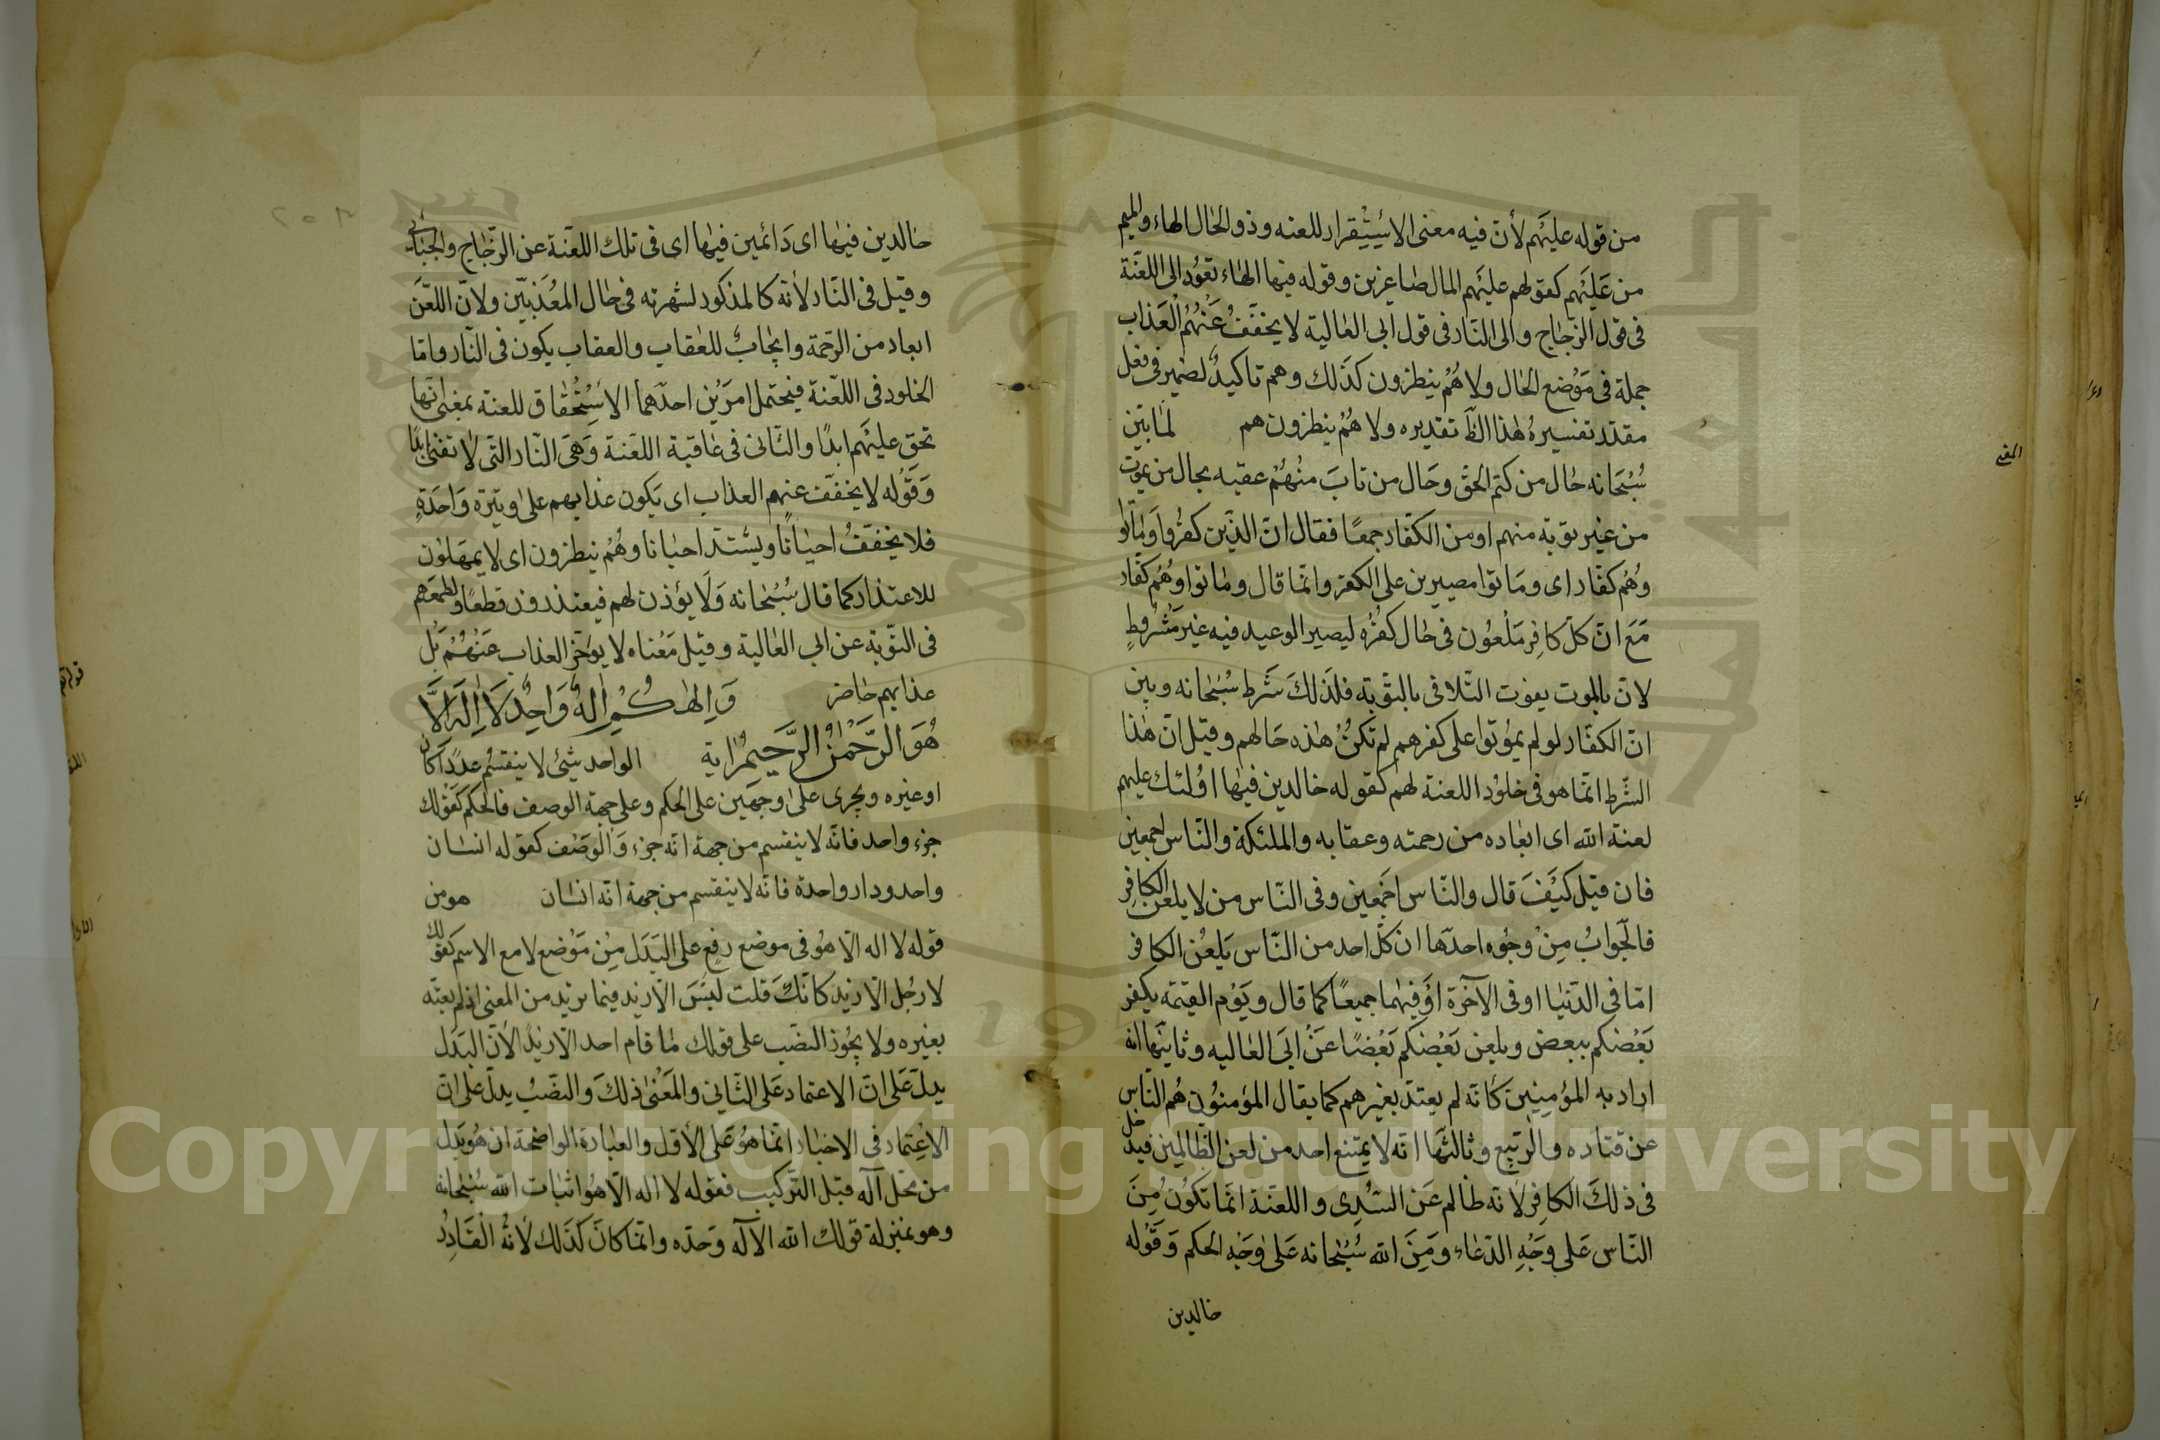 من قوله عليهم لأن فيه معنى الاستقرار للعنه وذو الحال الهاء والميم
من عليهم كقولهم عليهم المال صاغرين وقوله فيها الهاء تعود الى اللعنة
فى قول الزجاج والى النار فى قول ابى العالية لا يخفف عنهم العذاب
جملة فى موضع الحال ولا هم ينظرون كذلك وهم تاكيد لضمير فى فعل
مقدر تفسيره هذا الظ تقديره ولا هم ينظرون هم لما بين
سبحانه حال من كتم الحق وحال من تاب منهم عقبه بحال من يموت
من غير توبة منهم او من الكفار جمعا فقال ان الذين كفروا وماتوا
وهم كفار اى وماتوا مصيرين على الكفر وانما قال وماتوا وهم كفار
مع ان كل كافر ملعون فى حال كفره ليصير الوعيد فيه غير مشروط
لان بالموت يفوت التلافى بالتوبة فلذلك شرط سبحانه وبين
ان الكفار لو لم يموتوا على كفرهم لم تكن هذه حالهم وقيل ان هذا
الشرط انما هو فى خلود اللعنة لهم كقوله خالدين فيها اولئك عليهم
لعنة الله اى ابعاده من رحمته وعقابه والملئكة والناس اجمعين
فان قيل كيف قال والناس اجمعين وفى الناس من لا يلعن الكافر
فالجواب من وجوه احدها ان كل احد من الناس يلعن الكافر
اما فى الدنيا او فى الآخرة او فيهما جميعا كما قال ويوم القيمة يكفر
بعضكم ببعض ويلعن بعضكم بعضا عن ابى العاليه وثانيها انه
اراد به المؤمنين كانه لم يعتد بغيرهم كما يقال المؤمنون هم الناس
عن قتاده والربيع وثالثها انه لا يمتنع احد من لعن الظالمين فيدخل
فى ذلك الكافر لانه ظالم عن السدى واللعنة انما تكون من
الناس على وجه الدعاء ومن الله سبحانه على وجه الحكم وقوله
خالدين
خالدين فيها اى دائمين فيها اى فى تلك اللعنة عن الزجاج والجبائى
وقيل فى النار لانه كالمذكور لشهرته فى حال المعذبين ولان اللعن
ابعاد من الرحمة وايجاب للعقاب والعقاب يكون فى النار واما
الخلود فى اللعنة فيحتمل امرين احدهما الاستحقاق للعنة بمعنى انها
تحق عليهم ابدا والثانى فى عاقبة اللعنة وهى النار التى لا تفنى ابدا
وقوله لا يخفف عنهم العذاب اى يكون عذابهم على وتيرة واحدة
فلا يخفف احيانا ويشتد احيانا وهم ينظرون اى لا يمهلون
للاعتذار كما قال سبحانه ولا يؤذن لهم فيعتذرون قطعا ولطمعهم
فى التوبة عن ابى العالية وقيل معناه لا يؤخر العذاب عنهم بل
عذابهم حاضر وإلهكم إله واحد لا إله إلا
هو الرحمن الرحيم اية الواحد شئ لا ينقسم عددا كان
او غيره ويجرى على وجهين على الحكم وعلى جهة الوصف فالحكم كقولك
جزء واحد فانه لا ينقسم من جهة انه جزء والوصف كقوله انسان
واحد ودار واحدة فانه لا ينقسم من جهة انه انسان هو من
قوله لا اله الا هو فى موضع رفع على البدل من موضع لا مع الاسم كقولك
لا رجل الا زيد كانك قلت ليس الا زيد فيما تريد من المعنى اذا لم يعتد
بغيره ولا يجوز النصب على قولك ما قام احد الا زيدا لان البدل
يدل على ان الاعتماد على الثانى والمعنى ذلك والنصب يدل على ان
الاعتماد فى الاخبار انما هو على الاول والعبارة الواضحة ان هو بدل
من محل اله قبل التركيب فقوله لا اله الا هو اثبات الله سبحانه
وهو بمنزلة قولك الله الاله وحده وانما كان كذلك لانه القادر
Copyright © King Saud University